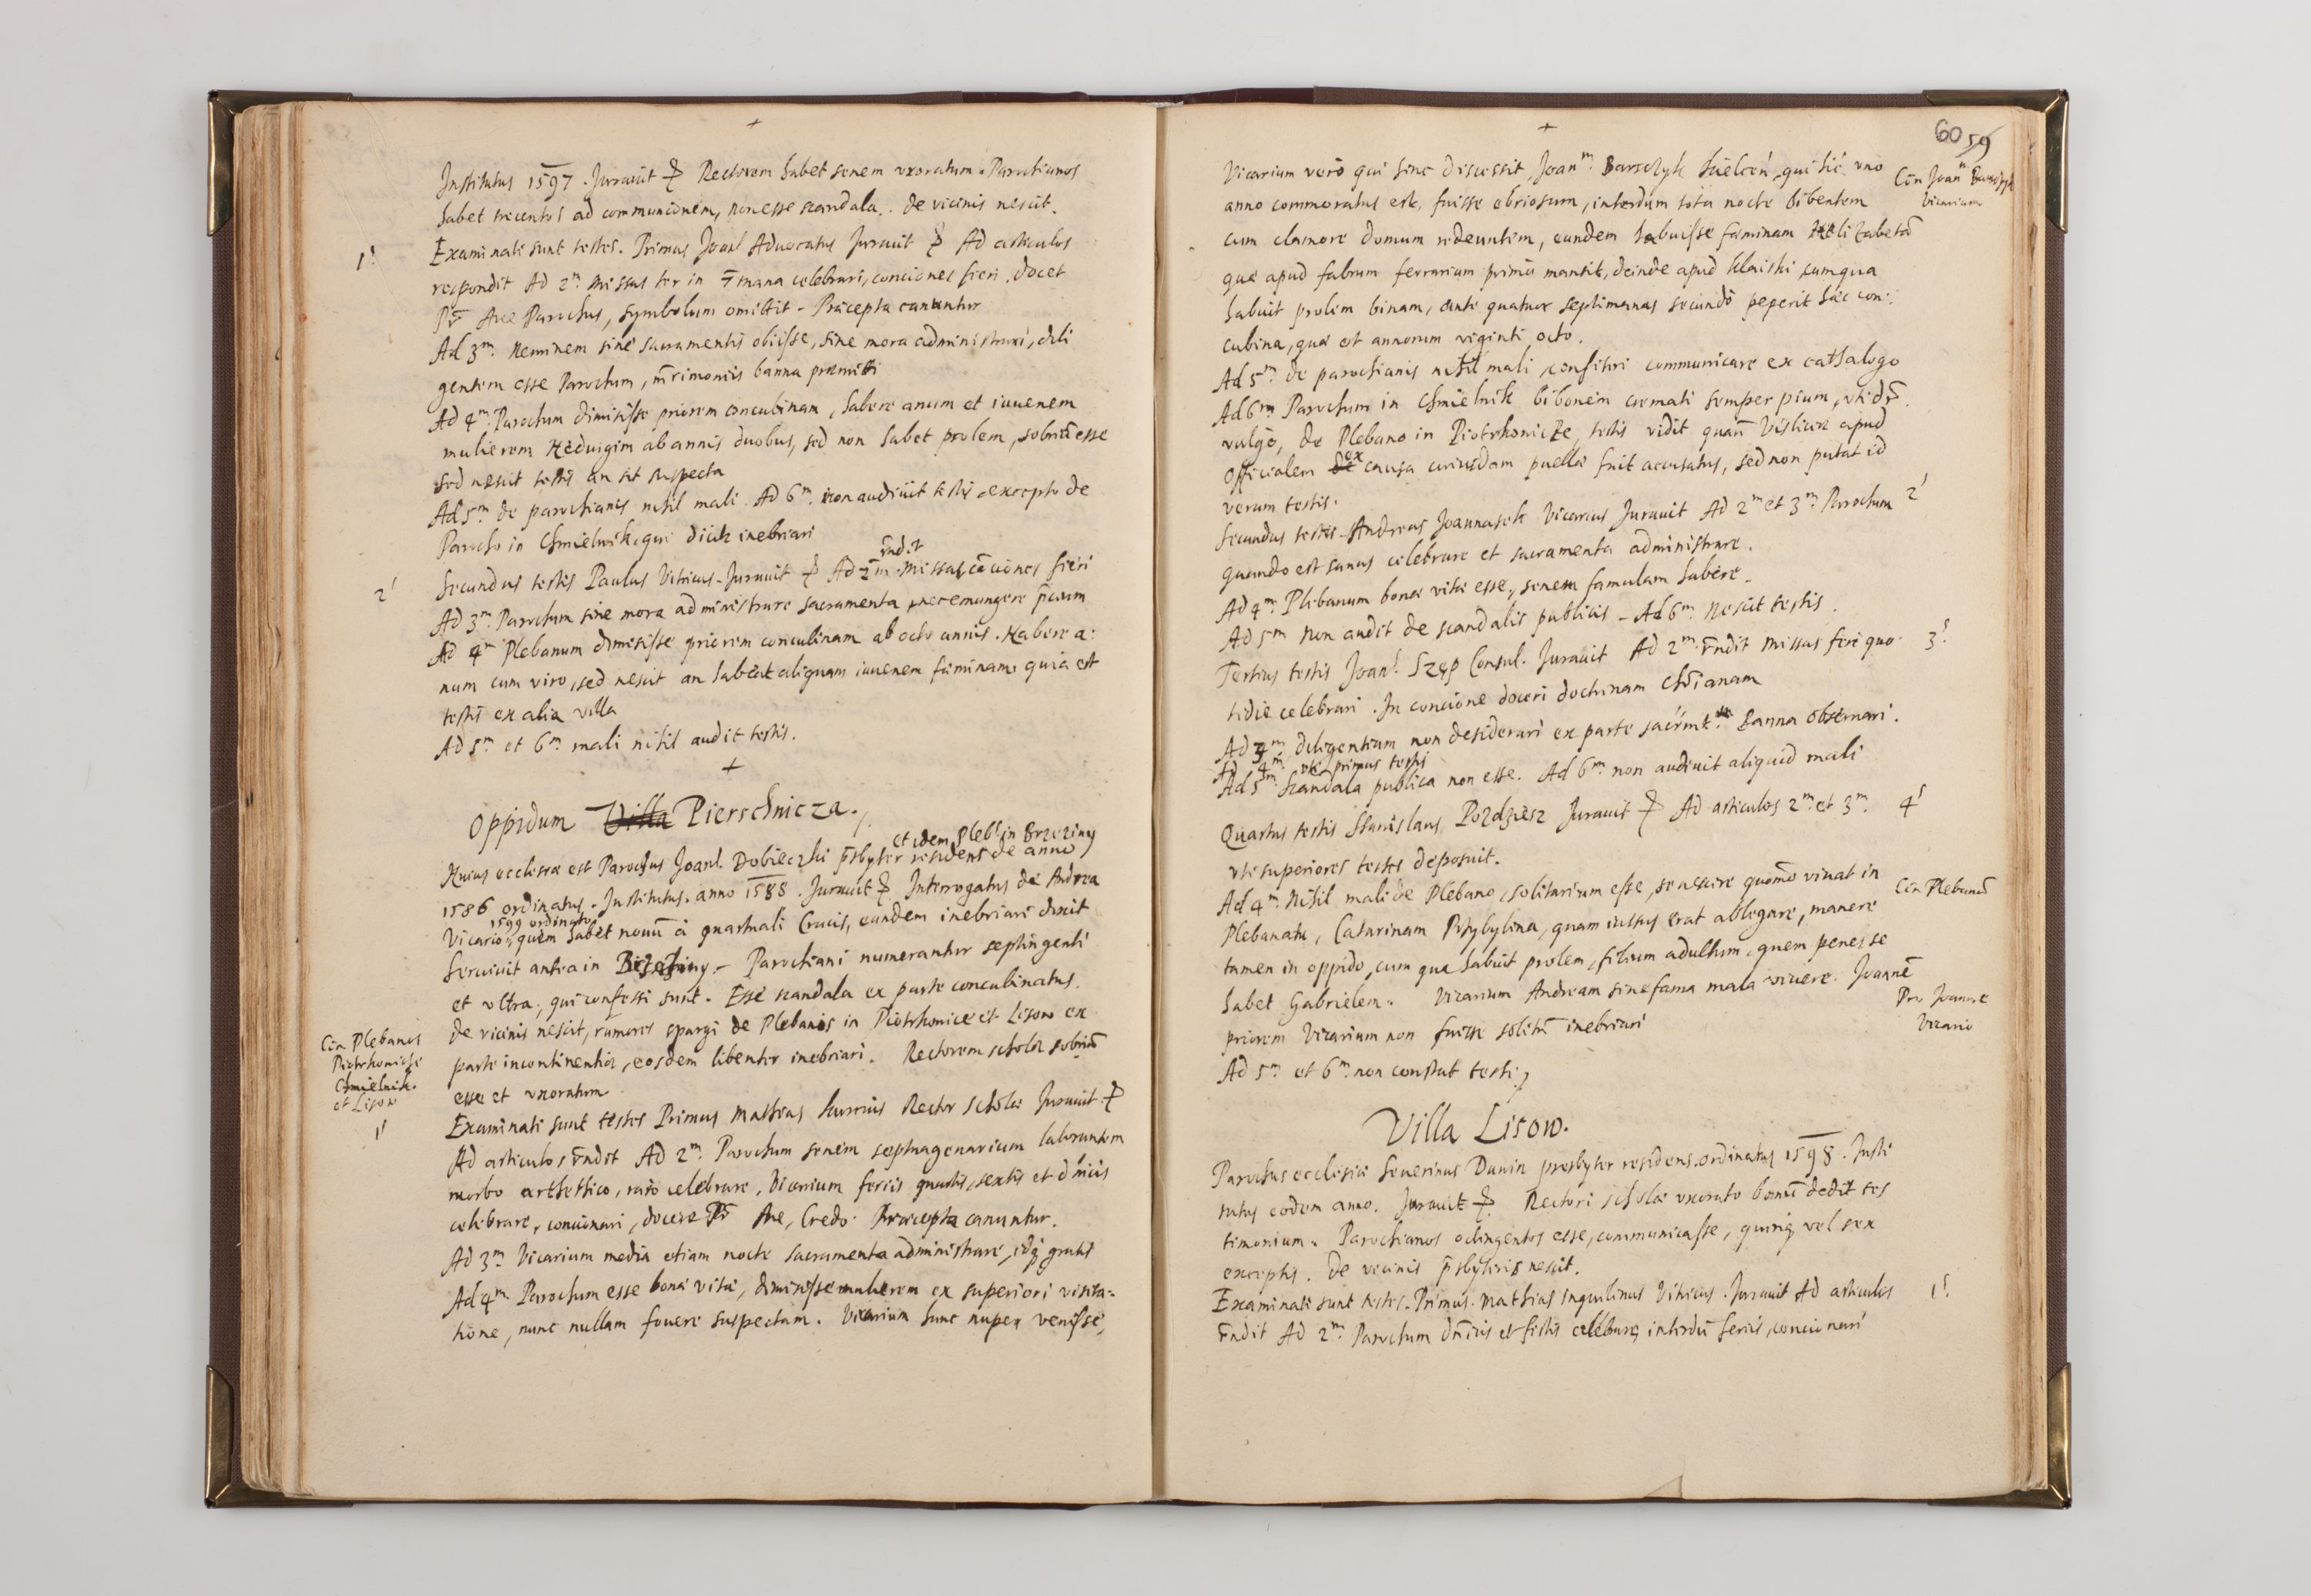 +
Institutus 1597. Jurauit Rectorem habet senem vxoratum. Parochianos
habet trecentos ad communionem, non esse scandala. de vicinis nescit.
1s
Examinati sunt testes. Primus Joans Aduocatus Jurauit Ad articulos
respondit Ad 2m missas ter in 7mana celebrari, conciones fieri, docet
Pr Aue Parochus, symbolum omittit. Præcepta canuntur
Ad 3m Neminem sine sacramentis obiisse, sine mora administrari, dili
gentem esse Parochum, mrimoniis banna præmitti
Ad 4m Parochum dimisisse priorem concubinam, habere anum et iuuenem
mulierem Heduigim ab annis duobus, sed non habet prolem, sobriū esse
sed nescit testis an sit suspecta
Ad 5m de parochianis nihil mali. Ad 6m non audiuit testis excepto de
Parocho in Chmielnik, qui dicit inebriari
2s
rndit
Secundus testis Paulus Vitricus. Jurauit Ad 2m missas, cōciones fieri
Ad 3m Parochum sine mora administrare sacramenta, nec emungere pcium
Ad 4m Plebanum dimisisse priorem concubinam ab octo annis. Habere a:
num cum viro, sed nescit an habeat aliquam iuuenem fæminam, quia est
testis ex alia villa
Ad 5m et 6m mali nihil audit testis.
+
Oppidum Villa Pierschnicza.
et idem Plebs in Brzeziny
Huius ecclesiæ est Parochus Joans Dobieczki pr̄sbyter residens de anno
1586 ordinatus. Institutus anno 1588. Jurauit Interrogatus de Andrea
1599 ordinato
Vicario, quem habet nouū à quartuali Crucis, eundem inebriari dixit
seruiuit antea in Parochiani numerantur septingenti
et vltra, qui confessi sunt. Esse scandala ex parte concubinatus.
de vicinis nescit, rumores spargi de Plebanis in Piotrkonice et Lisow ex
Cōn Plebanos
Piotrkonicze
Chmielnik.
et Lisow
parte incontinentiæ, eosdem libenter inebriari. Rectorem scholæ sobriū
esse et vxoratum
1s
Examinati sunt testes Primus Mathias Rector scholæ Jurauit
Ad articulos r̄ndit Ad 2m Parochum senem septuagenarium laborantem
morbo arthethico, raro celebrare, Vicarium feriis quartis, sextis et dnicis
celebrare, concionari, docere Pr Aue, Credo. Præcepta canuntur.
Ad 3m Vicarium media etiam nocte sacramenta administrare, idq gratis
Ad 4m Parochum esse bonæ vitæ, dimisisse mulierem ex superiori visita=
tione, nunc nullam fouere suspectam. Vicarium hunc nuper venisse,
+
60 59
Vicarium verò qui hinc discessit, Joanm Barschyk Kielceń, qui hic vno
anno commoratus est, fuisse ebriosum, interdum tota nocte bibentem
Cōn Joanm Barschyk
Vicarium
cum clamore domum redeuntem, eundem habuisse fæminam Helizabetā
quæ apud fabrum ferrarium primū mansit, deinde apud Klaiski cum qua
habuit prolem binam, ante quatuor septimanas secundò peperit hæc con:
cubina, quæ est annorum viginti octo.
Ad 5m de parochianis nihil mali, confiteri communicare ex cathalogo
Ad 6m Parochum in Chmielnik bibonem cremati semper pium, vti dr
vulgo, de Plebano in Piotrkonicze, testis vidit quan Vislicæ apud
Officialem de ex causa cuiusdam puellæ fuit accusatus, sed non putat id
verum testis.
2s
Secundus testis Andreas Joannasek Vicarius Jurauit Ad 2m et 3m Parochum
quando est sanus celebrare et sacramenta administrare.
Ad 4m Plebanum bonæ vitæ esse, senem famulam habere.
Ad 5m Non audit de scandalis publicis. Ad 6m Nescit testis.
3s
Tertius testis Joans Szep Consul. Jurauit Ad 2m r̄ndit missas fere quo
tidie celebrari. In concione doceri doctrinam chr̄ianam
Ad 3m diligentiam non desiderari ex parte sacrmt Banna obseruari.
Ad 4m vti primus testis
Ad 5m Scandala publica non esse. Ad 6m non audiuit aliquid mali
4s
Quartus testis Stanislaus Jurauit Ad articulos 2m et 3m
vti superiores testes deposuit.
Cōn Plebanū
Ad 4m Nihil mali de Plebano, solitarium esse, se nescire quomō viuat in
Plebanatu, Catarinam Przybylina, quam iussus erat ablegare, manere
tamen in oppido, cum qua habuit prolem, filium adultum, quem penes se
habet Gabrielem. Vicarium Andream sine fama mala viuere. Joannē
Pro Joanne
Vicario
priorem Vicarium non fuisse solitū inebriari
Ad 5m et 6m non constat testi
Villa Lisow.
Parochus ecclesiæ Seuerinus Dunin presbyter residens. ordinatus 1598. Insti
tutus eodem anno. Jurauit Rectori scholæ vxorato bonū dedit tes
timonium. Parochianos octingentos esse, communicasse, quinq vel sex
exceptis. De vicinis pr̄sbyteris nescit.
1s
Examinati sunt testes. Primus Mathias inquilinus Vitricus. Jurauit Ad articulos
r̄ndit Ad 2m Parochum dnicis et festis celebrare, interdū feriis, concionari